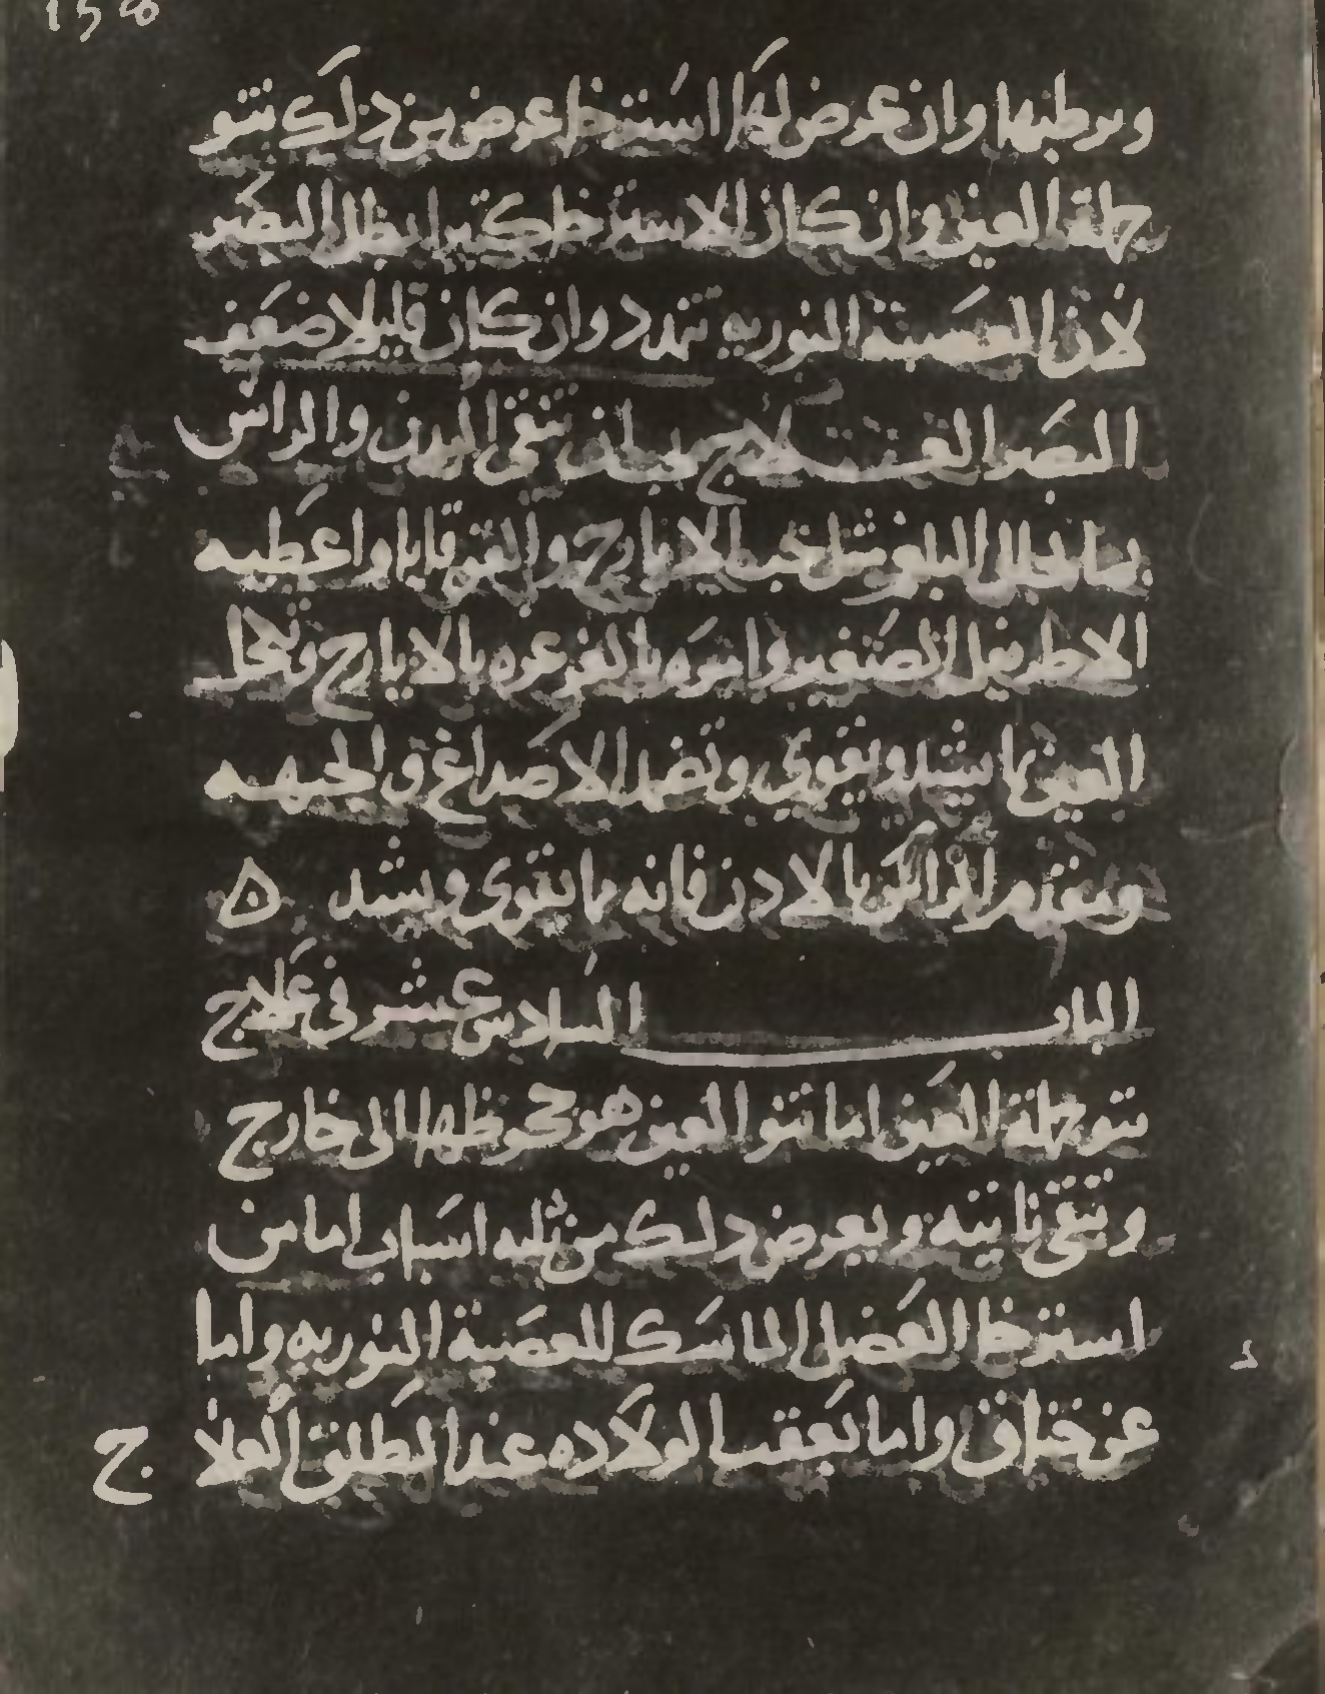 ويرطبها وان عرض لها استرخا عرض من دلك نتو
جملة العين وان كان الاسترخا كثيرا بطل البصر
لان العصبة النوريه تمدد وان كان قليلا ضعف
البصر العلاج ينبغي ان تنقى البدن والراس
بما يحلل البلغم مثل حب الايارج والقوقايا واعطيه
الاطريفل الصغير وامره بالغرغره بالايارج وتكحل
العين بما يشد ويقوي وتضمد الاصداغ والجبهه
ومقدم الراس بالادن فانه مما يقوى ويشد ه
الباب السادس عشر في علاج
نتو جملة العين اما نتو العين هو جحوظها الى خارج
وتبقى ناتيه ويعرض دلك من ثلثه اسباب اما من
استرخا العضل الماسك للعصبة النوريه واما
عن خناق واما بعقب الولاده عند الطلق العلاج